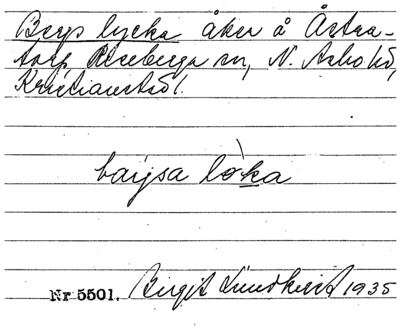 Bergs lycka åker å Åstra-
torp, Riseberga sn, N. Åsbo hd,
Kristianstad l.
barjsa lòka
Nr 5501. Birgit Lindkvist 1935